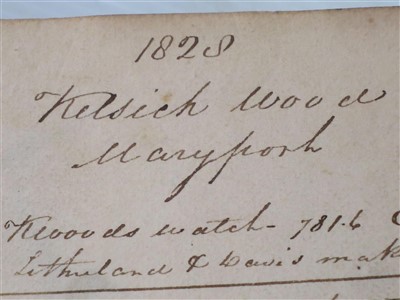 1828
Kelsich Wood
Maryport
KWoods watch - 781.6
Litherland & Davis mak